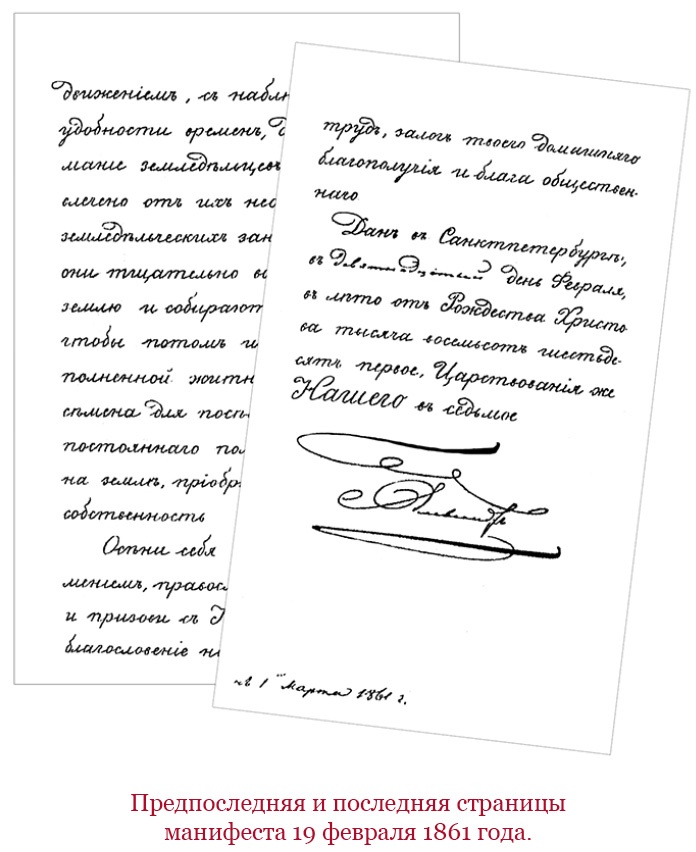 движеніемъ, съ наблю
удобности временъ,
маніе земледѣльцевъ
влечено отъ ихъ нео
земледѣльческихъ зан
они тщательно во
землю и собираютъ
чтобы потомъ и
полненной житн
сѣмена для посѣ
постояннаго пол
на землѣ, пріобр
собственность
Осѣни себя
меніемъ, правосл
и призови съ Н
благословеніе на
трудъ, залогъ твоего домашняго
благополучія и блага обществен-
наго
Данъ въ Санктпетербургѣ,
въ девятнадцатый день Февраля,
въ лѣто отъ Рождества Христо
ва тысяча восемьсотъ шестьде-
сятъ первое, Царствованія же
Нашего въ седьмое
Александръ
1 Марта 1861 г.
Предпоследняя и последняя страницы
манифеста 19 февраля 1861 года.